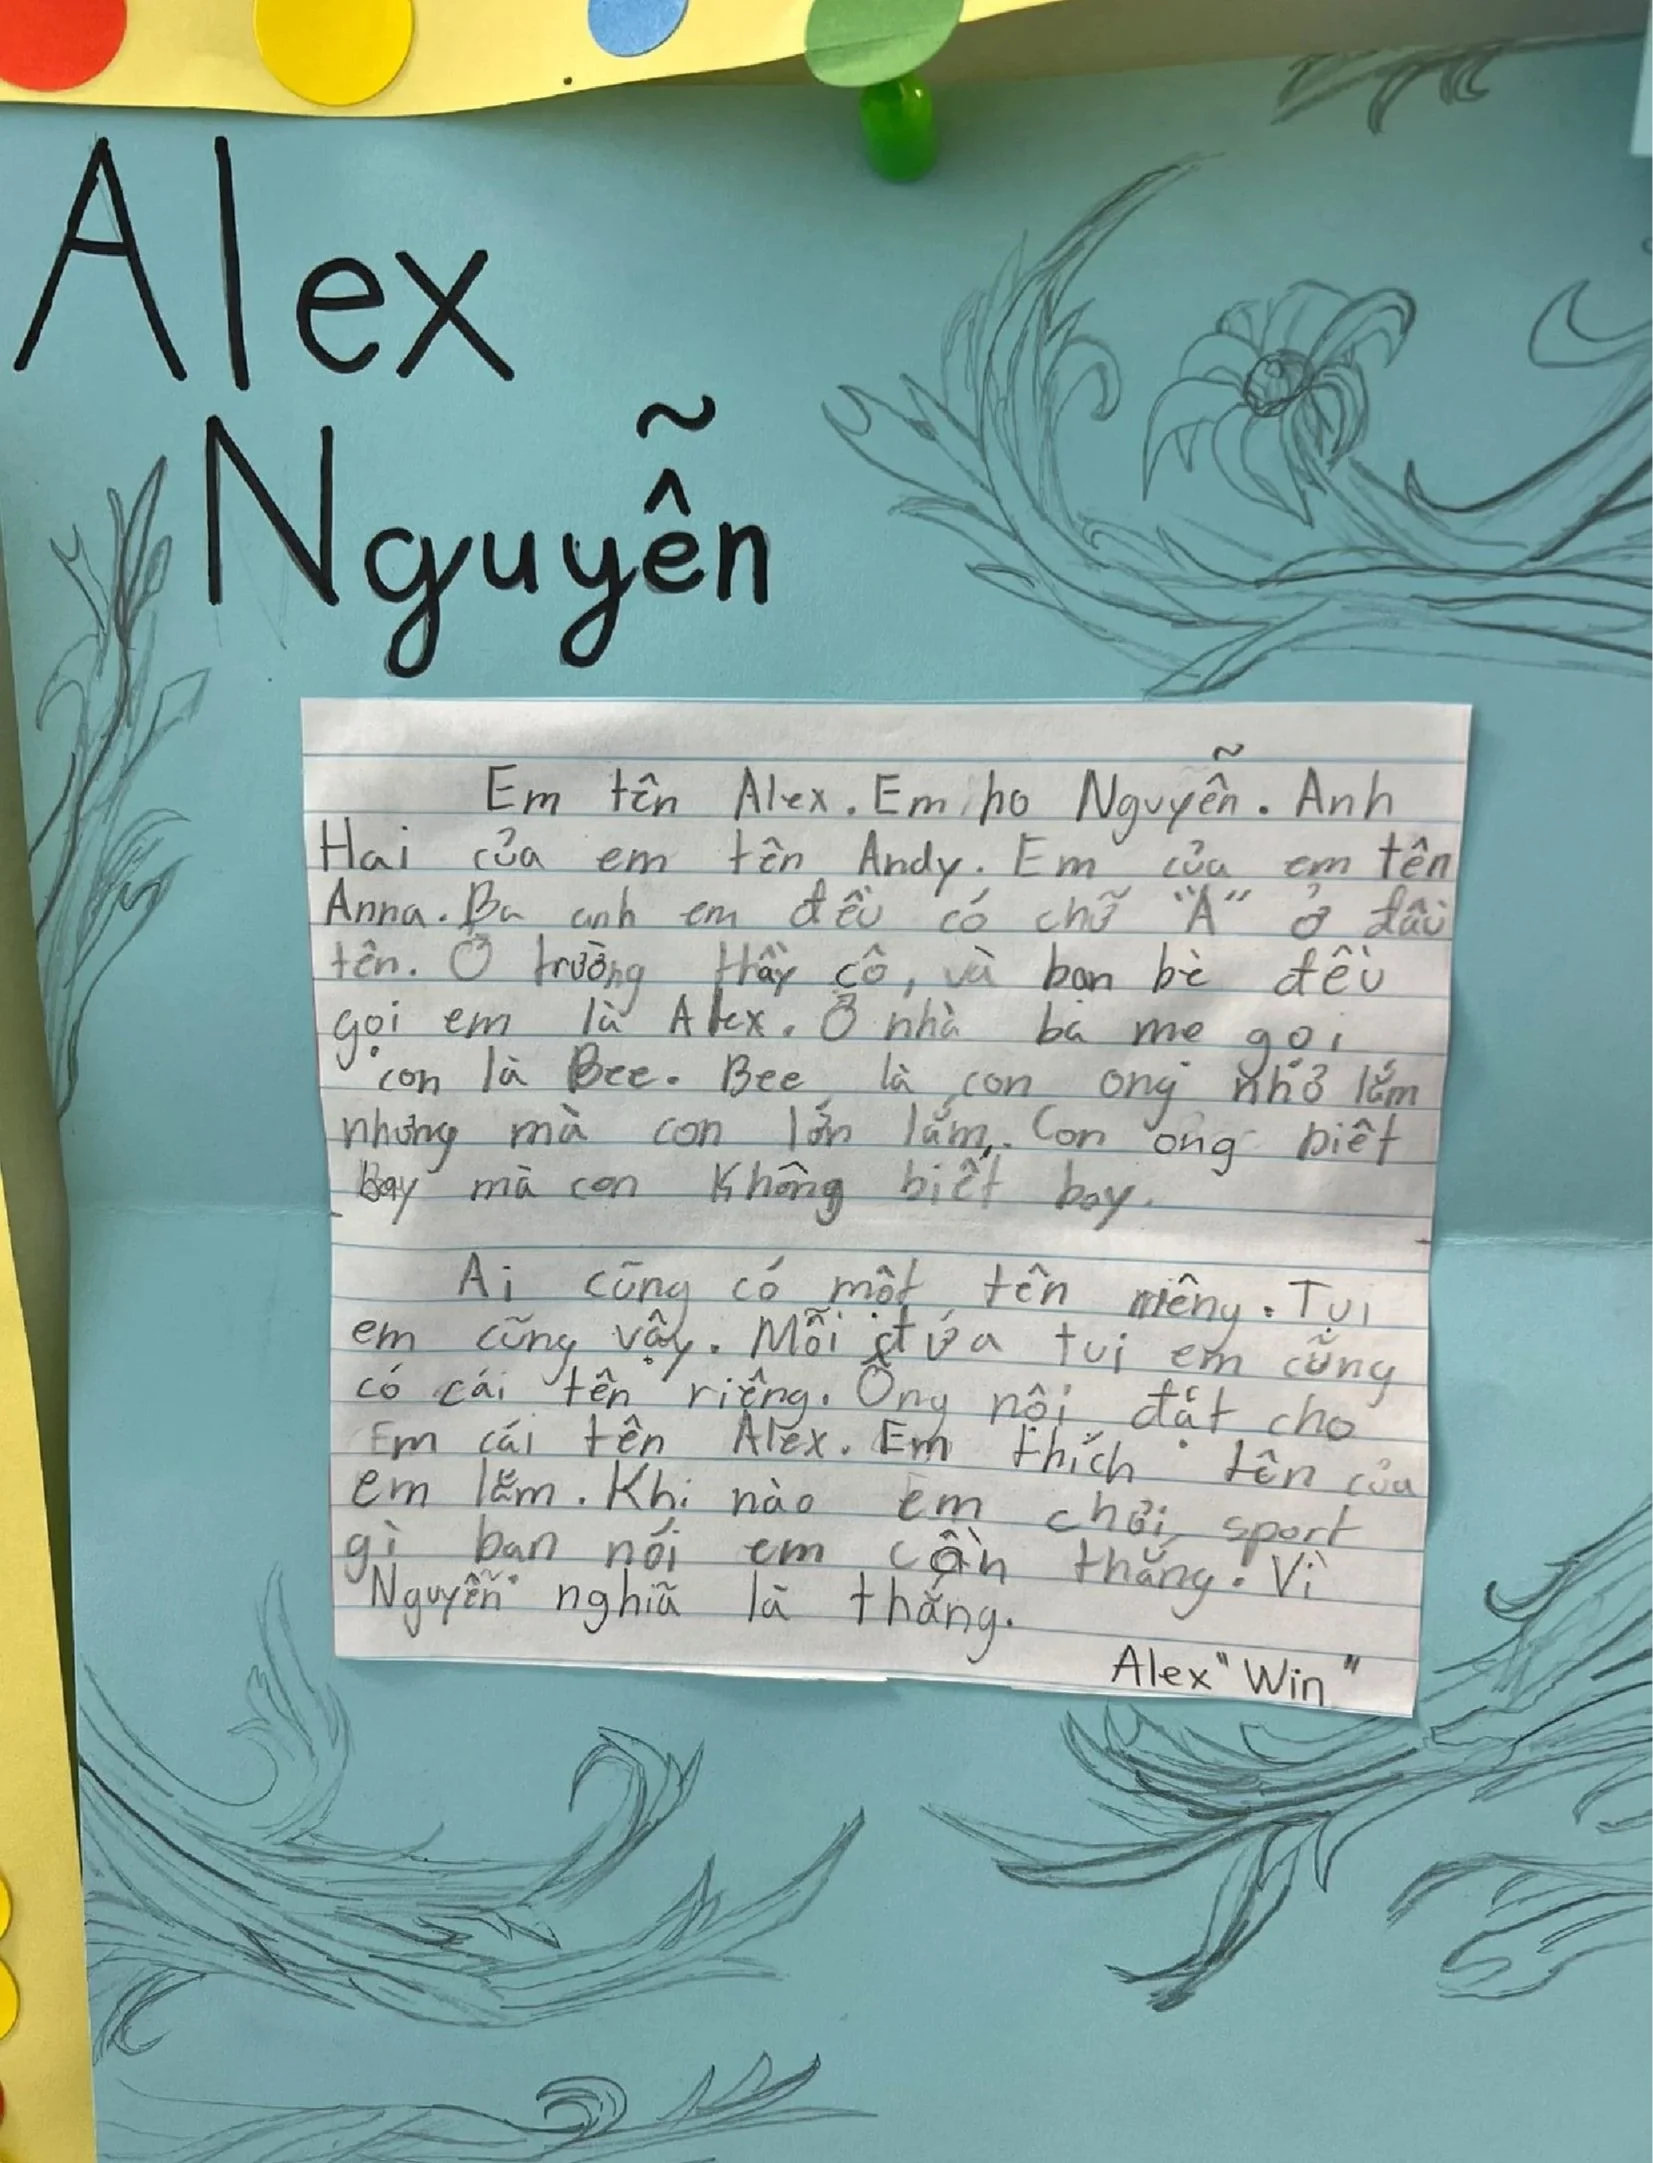 Alex
Nguyễn
Em tên Alex. Em họ Nguyễn. Anh
Hai của em tên Andy. Em của em tên
Anna. Ba anh em đều có chữ "A" ở đầu
tên. Ở trường thầy cô, và bạn bè đều
gọi em là Alex. Ở nhà ba mẹ gọi
con là Bee. Bee là con ong nhỏ lắm
nhưng mà con lớn lắm. Con ong biết
bay mà con không biết bay.
Ai cũng có một tên riêng. Tụi
em cũng vậy. Mỗi đứa tụi em cũng
có cái tên riêng. Ông nội đặt cho
Em cái tên Alex. Em thích tên của
em lắm. Khi nào em chơi sport
gì bạn nói em cần thắng. Vì
Nguyễn nghĩa là thắng.
Alex "Win"